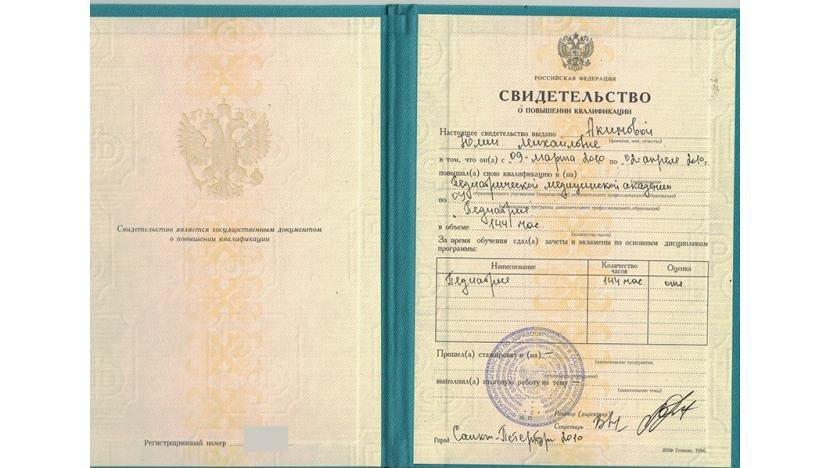 Свидетельство является государственным документом
о повышении квалификации
Регистрационный номер
РОССИЙСКАЯ ФЕДЕРАЦИЯ
СВИДЕТЕЛЬСТВО
О ПОВЫШЕНИИ КВАЛИФИКАЦИИ
Настоящее свидетельство выдано Акимовой
Юлии Михайловне
(фамилия, имя, отчество)
в том, что он(а) с 09 марта 2010 по 02 апреля 2010 г.
повышал(а) свою квалификацию в (на)
Педиатрической медицинской академии
по
"Педиатрия"
в объеме 144 час
(количество часов)
За время обучения сдал(а) зачеты и экзамены по основным дисциплинам
программы:
Наименование Количество часов Оценка
Педиатрия 144 час отл.
Прошел(а) стажировку в (на) —
(наименование предприятия,
выполнил(а) итоговую работу на тему
(наименование темы)
М. П.
Ректор (директор)
Секретарь
Город Санкт-Петербург 2010